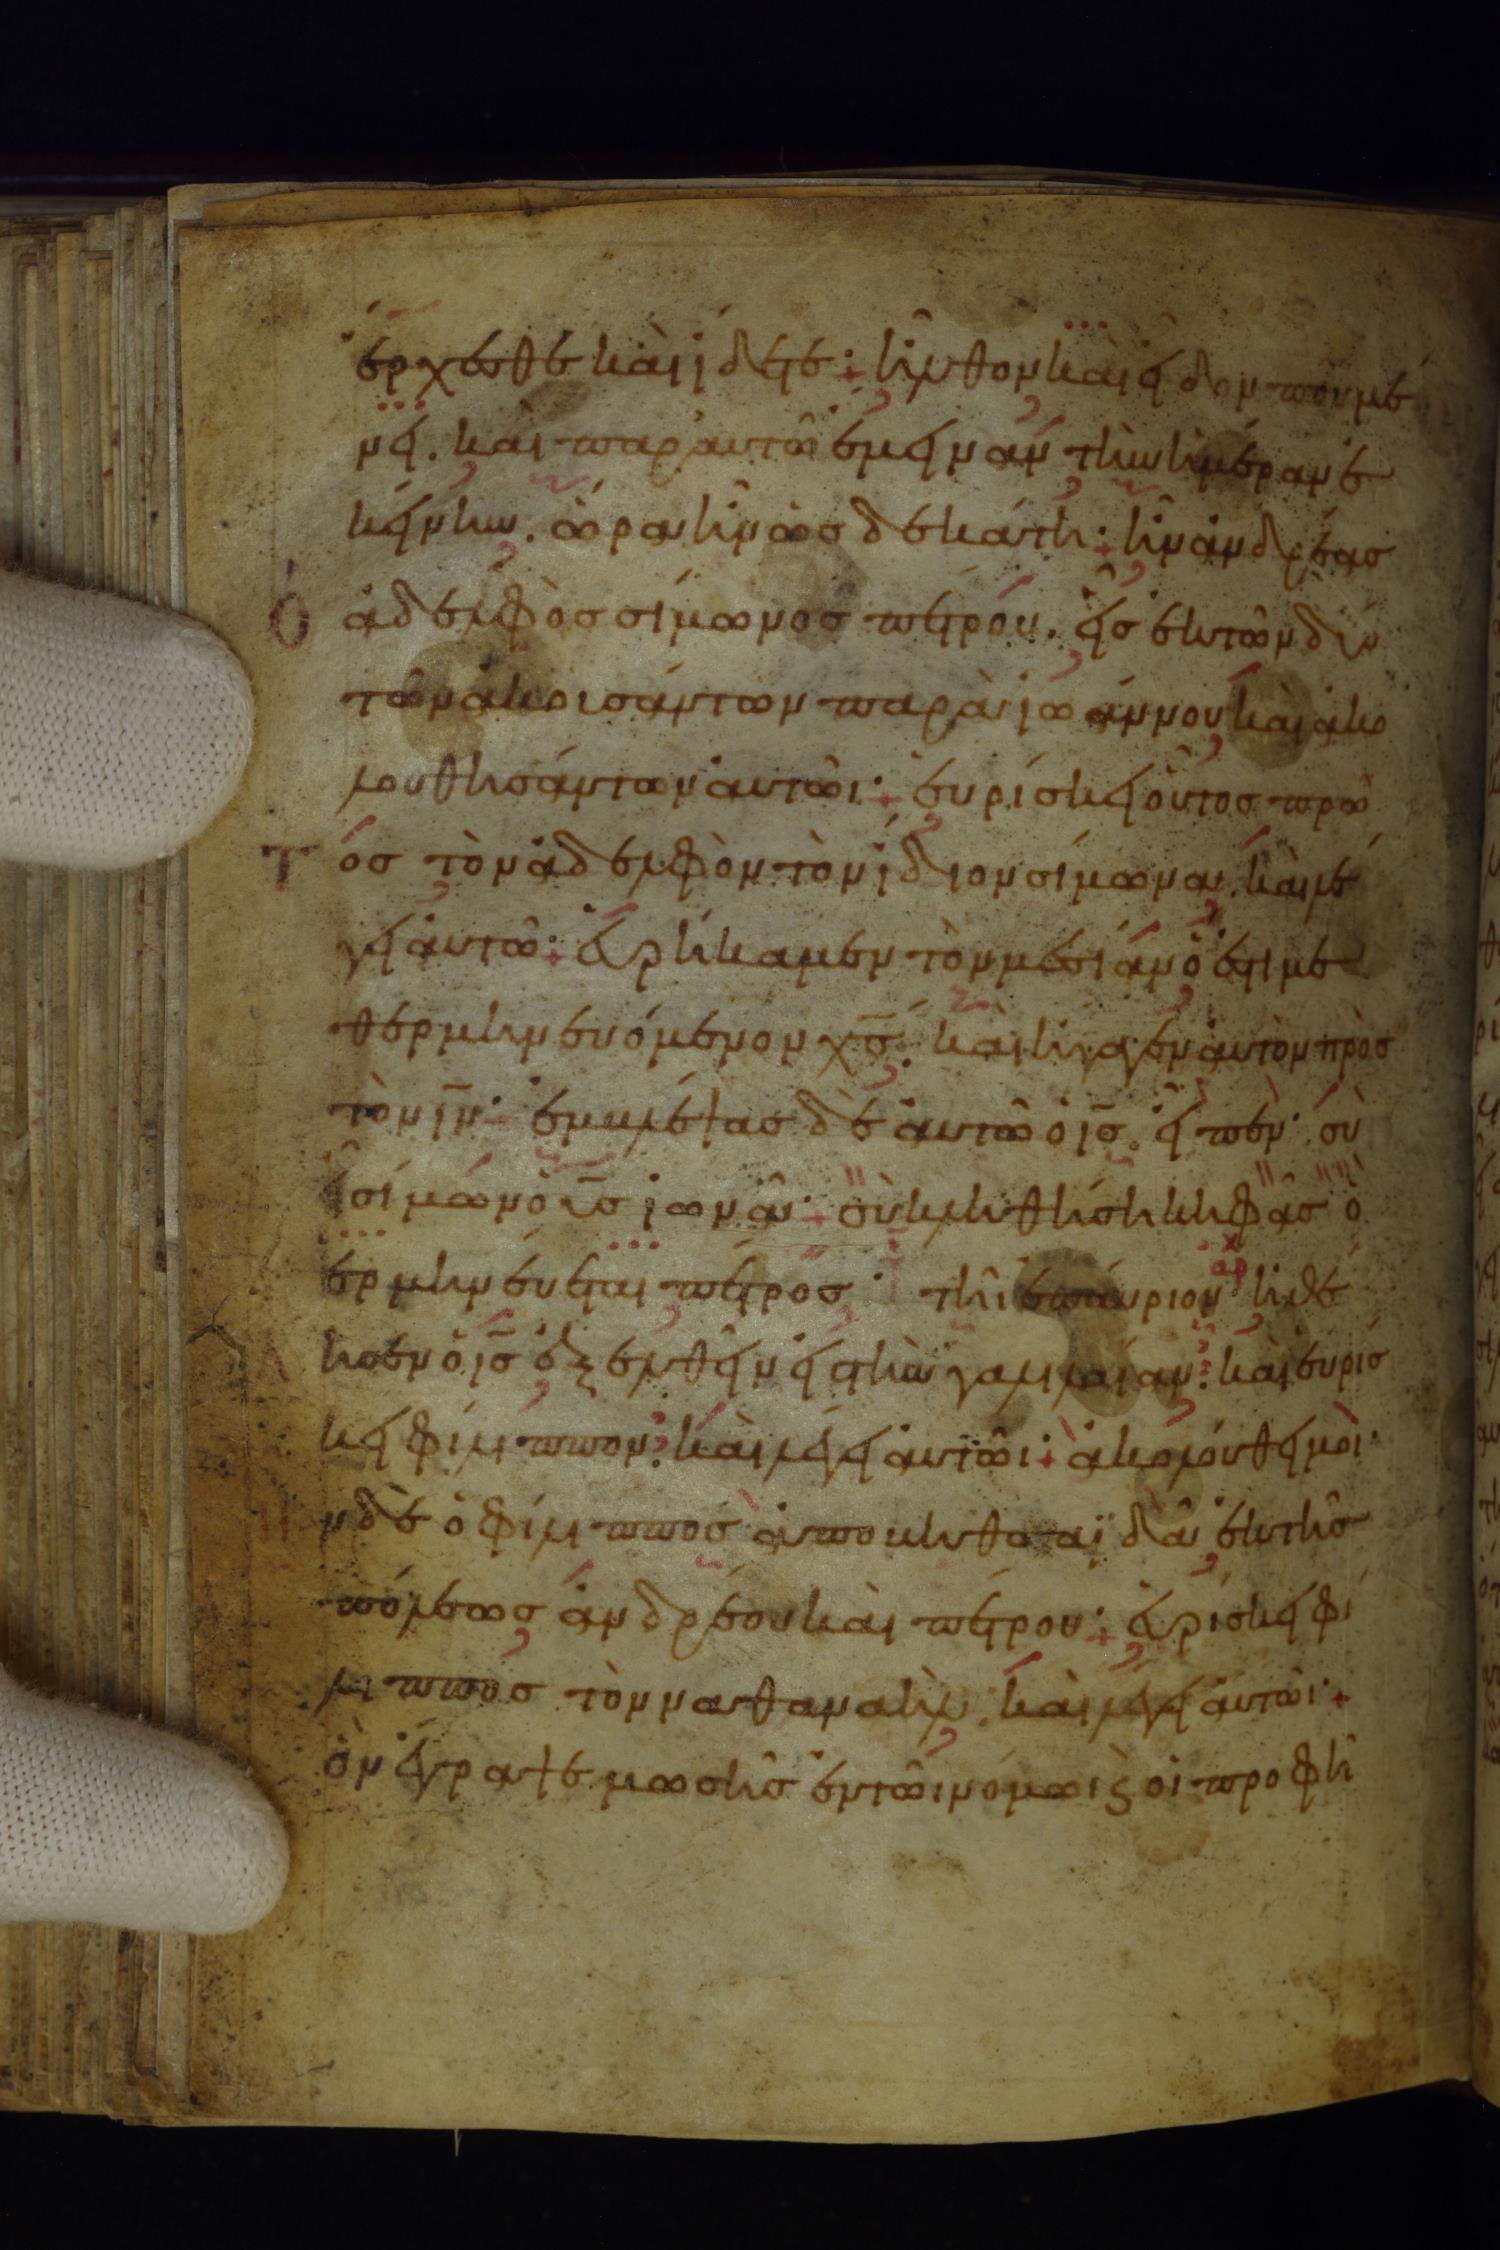 ἔρχεσθε καὶ ἴδετε· ἦλθον καὶ εἶδον ποῦ μέ
νει. καὶ παρ' αὐτῶ ἔμειναν τὴν ἡμέραν ἐ
κείνην. ὥρα ἦν ὡς δεκάτη· ἦν ἀνδρέας
ὁ ἀδελφὸς σίμωνος πέτρου. εἷς ἐκ τῶν δύο
τῶν ἀκουσάντων παρὰ ἰωάννου καὶ ἀκο
λουθησάντων αὐτῶι· εὑρίσκει οὗτος πρῶ
τος τὸν ἀδελφὸν τὸν ἴδιον σίμωνα. καὶ λέ
γει αὐτῶ· εὑρήκαμεν τὸν μεσίαν ὅ ἐστι με
θερμηνευόμενον χς̅. καὶ ἤγαγεν αὐτὸν πρὸς
τὸν ιν̅· ἐμβλέψας δὲ αὐτῶ ὁ ις̅. εἶπεν· σὺ
εἶ σίμων ὁ υς̅ ἰωνᾶ· σὺ κληθήση κηφᾶς ὃ
ἑρμηνεύεται πέτρος· τῆι ἐπαύριον ἠθέ
λησεν ὁ ις̅ ἐξελθεῖν εἰς τὴν γαλιλαίαν. καὶ εὑρίσ
κει φίλιππον. καὶ λέγει αὐτῶι· ἀκολούθει μοι·
ἦν δὲ ὁ φίλιππος ἀπὸ βηθσαϊδὰ ἐκ τῆς
πόλεως ἀνδρέου καὶ πέτρου· εὑρίσκει φί
λιππος τὸν ναθαναὴλ. καὶ λέγει αὐτῶι·
ὃν ἔγραψε μωσῆς ἐν τῶι νόμωι ϗ οἱ προφῆ